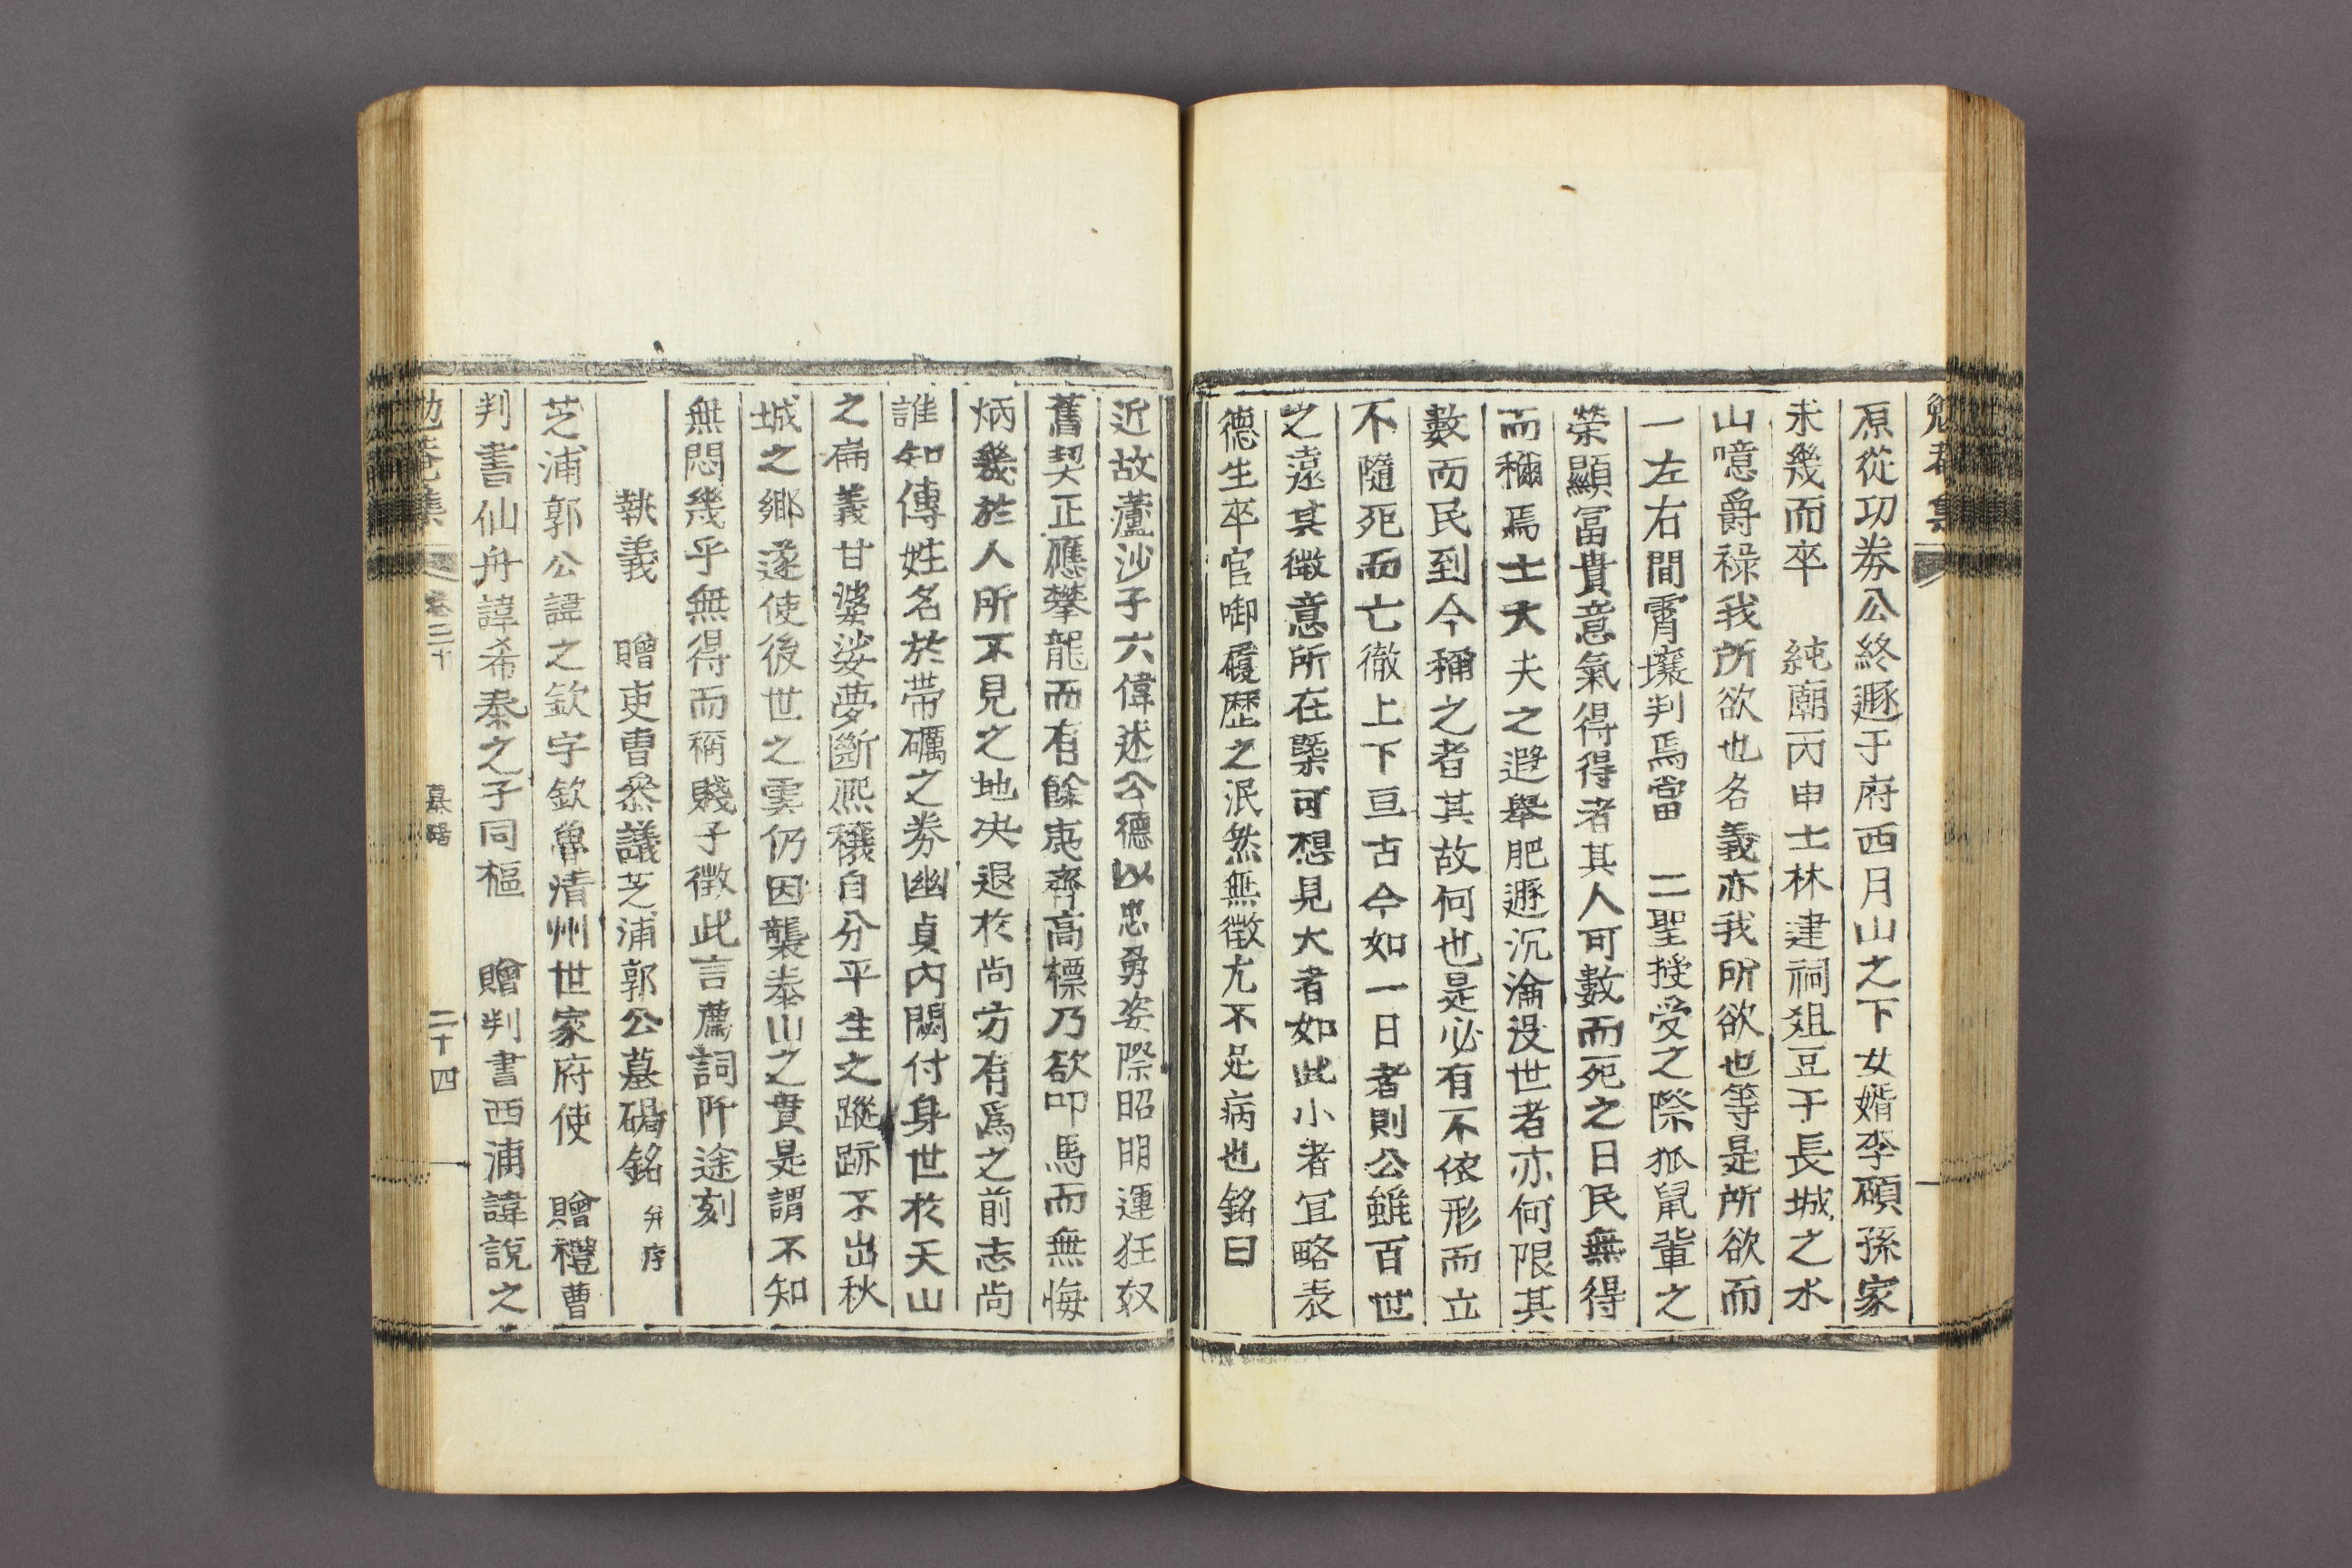 原從功券公終遯于府西月山之下女婿李碩孫家
未幾而卒　純廟丙申士林建祠俎豆于長城之水
山噫爵祿我所欲也名義亦我所欲也等是所欲而
一左右間霄壤判焉當　二聖授受之際狐鼠輩之
榮顯冨貴意氣得得者其人可數而死之日民無得
而稱焉士大夫之遐舉肥遯沉淪沒世者亦何限其
數而民到今稱之者其故何也是必有不依形而立
不隨死而亡徹上下亘古今如一日者則公雖百世
之遠其微意所在槩可想見大者如此小者宜略表
德生卒官啣履歷之泯然無徵尤不足病也銘曰
近故蘆沙子六偉述公德以忠勇姿際昭明運狂奴
舊契正應攀龍而有餘夷齊高標乃欲叩馬而無悔
炳幾於人所不見之地决退於尚方有爲之前志尚
誰知傳姓名於帶礪之券幽貞內閟付身世於天山
之扁義甘婆娑夢斷熙穰自分平生之蹤跡不出秋
城之鄕遂使後世之雲仍因襲泰山之貴是謂不知
無悶幾乎無得而稱賤子徵此言薦詞阡途刻
執義　贈吏曹叅議芝浦郭公墓碣銘 幷序
芝浦郭公諱之欽字欽魯清州世家府使　贈禮曹
判書仙舟諱希泰之子同樞　贈判書西浦諱說之
集 卷三十 墓碣 二十四